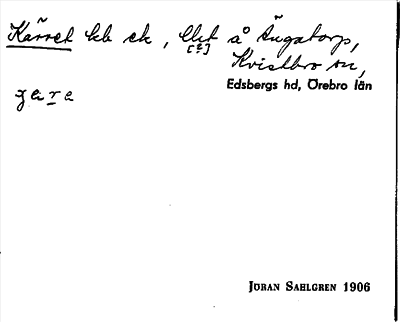 Kärret kb ek, [?] å Ängatorp,
Kvistbro sn,
Edsbergs hd, Örebro län
JÖRAN SAHLGREN 1906